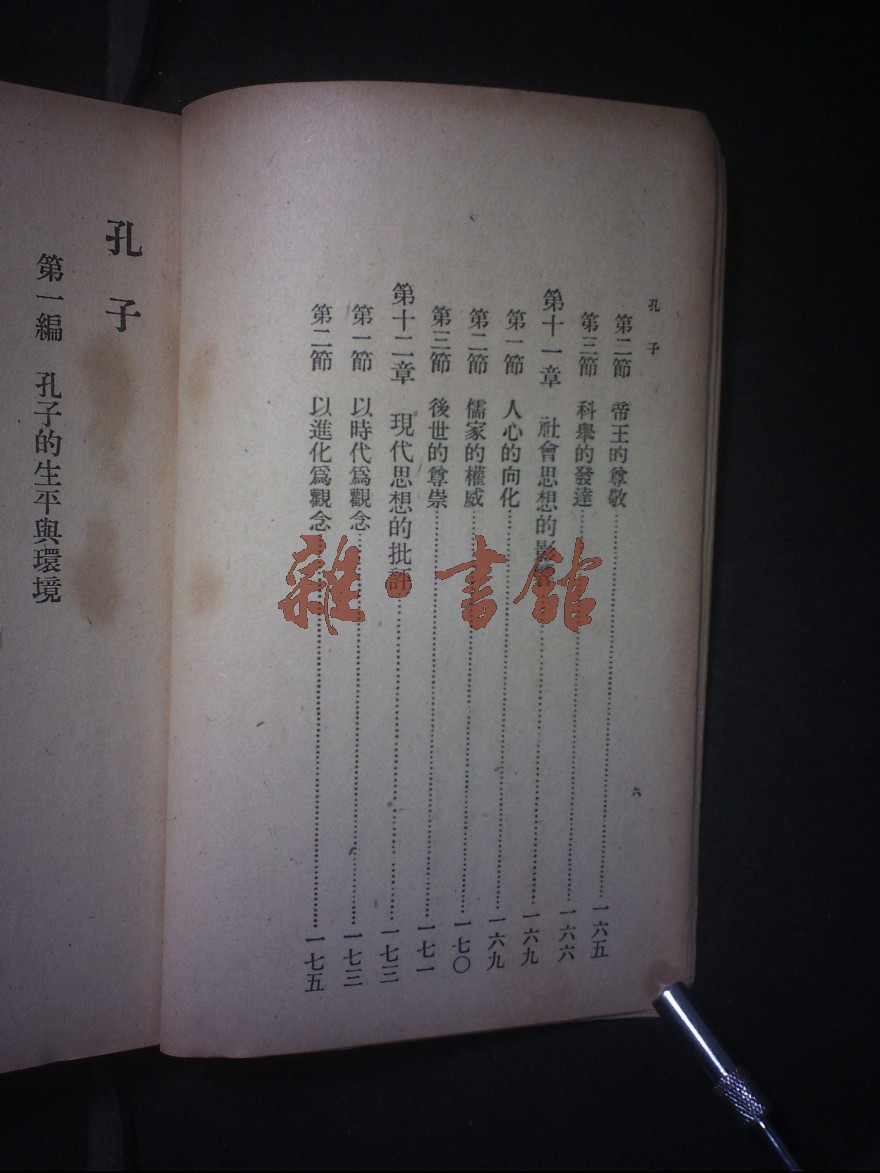 孔子
六
第二節 帝王的尊敬……一六五
第三節 科舉的發達……一六六
第十一章 社會思想的影……一六九
第一節 人心的向化……一六九
第二節 儒家的權威……一七〇
第三節 後世的尊崇……一七一
第十二章 現代思想的批評……一七三
第一節 以時代爲觀念……一七三
第二節 以進化爲觀念……一七五
孔子
第一編 孔子的生平與環境
雜·書館